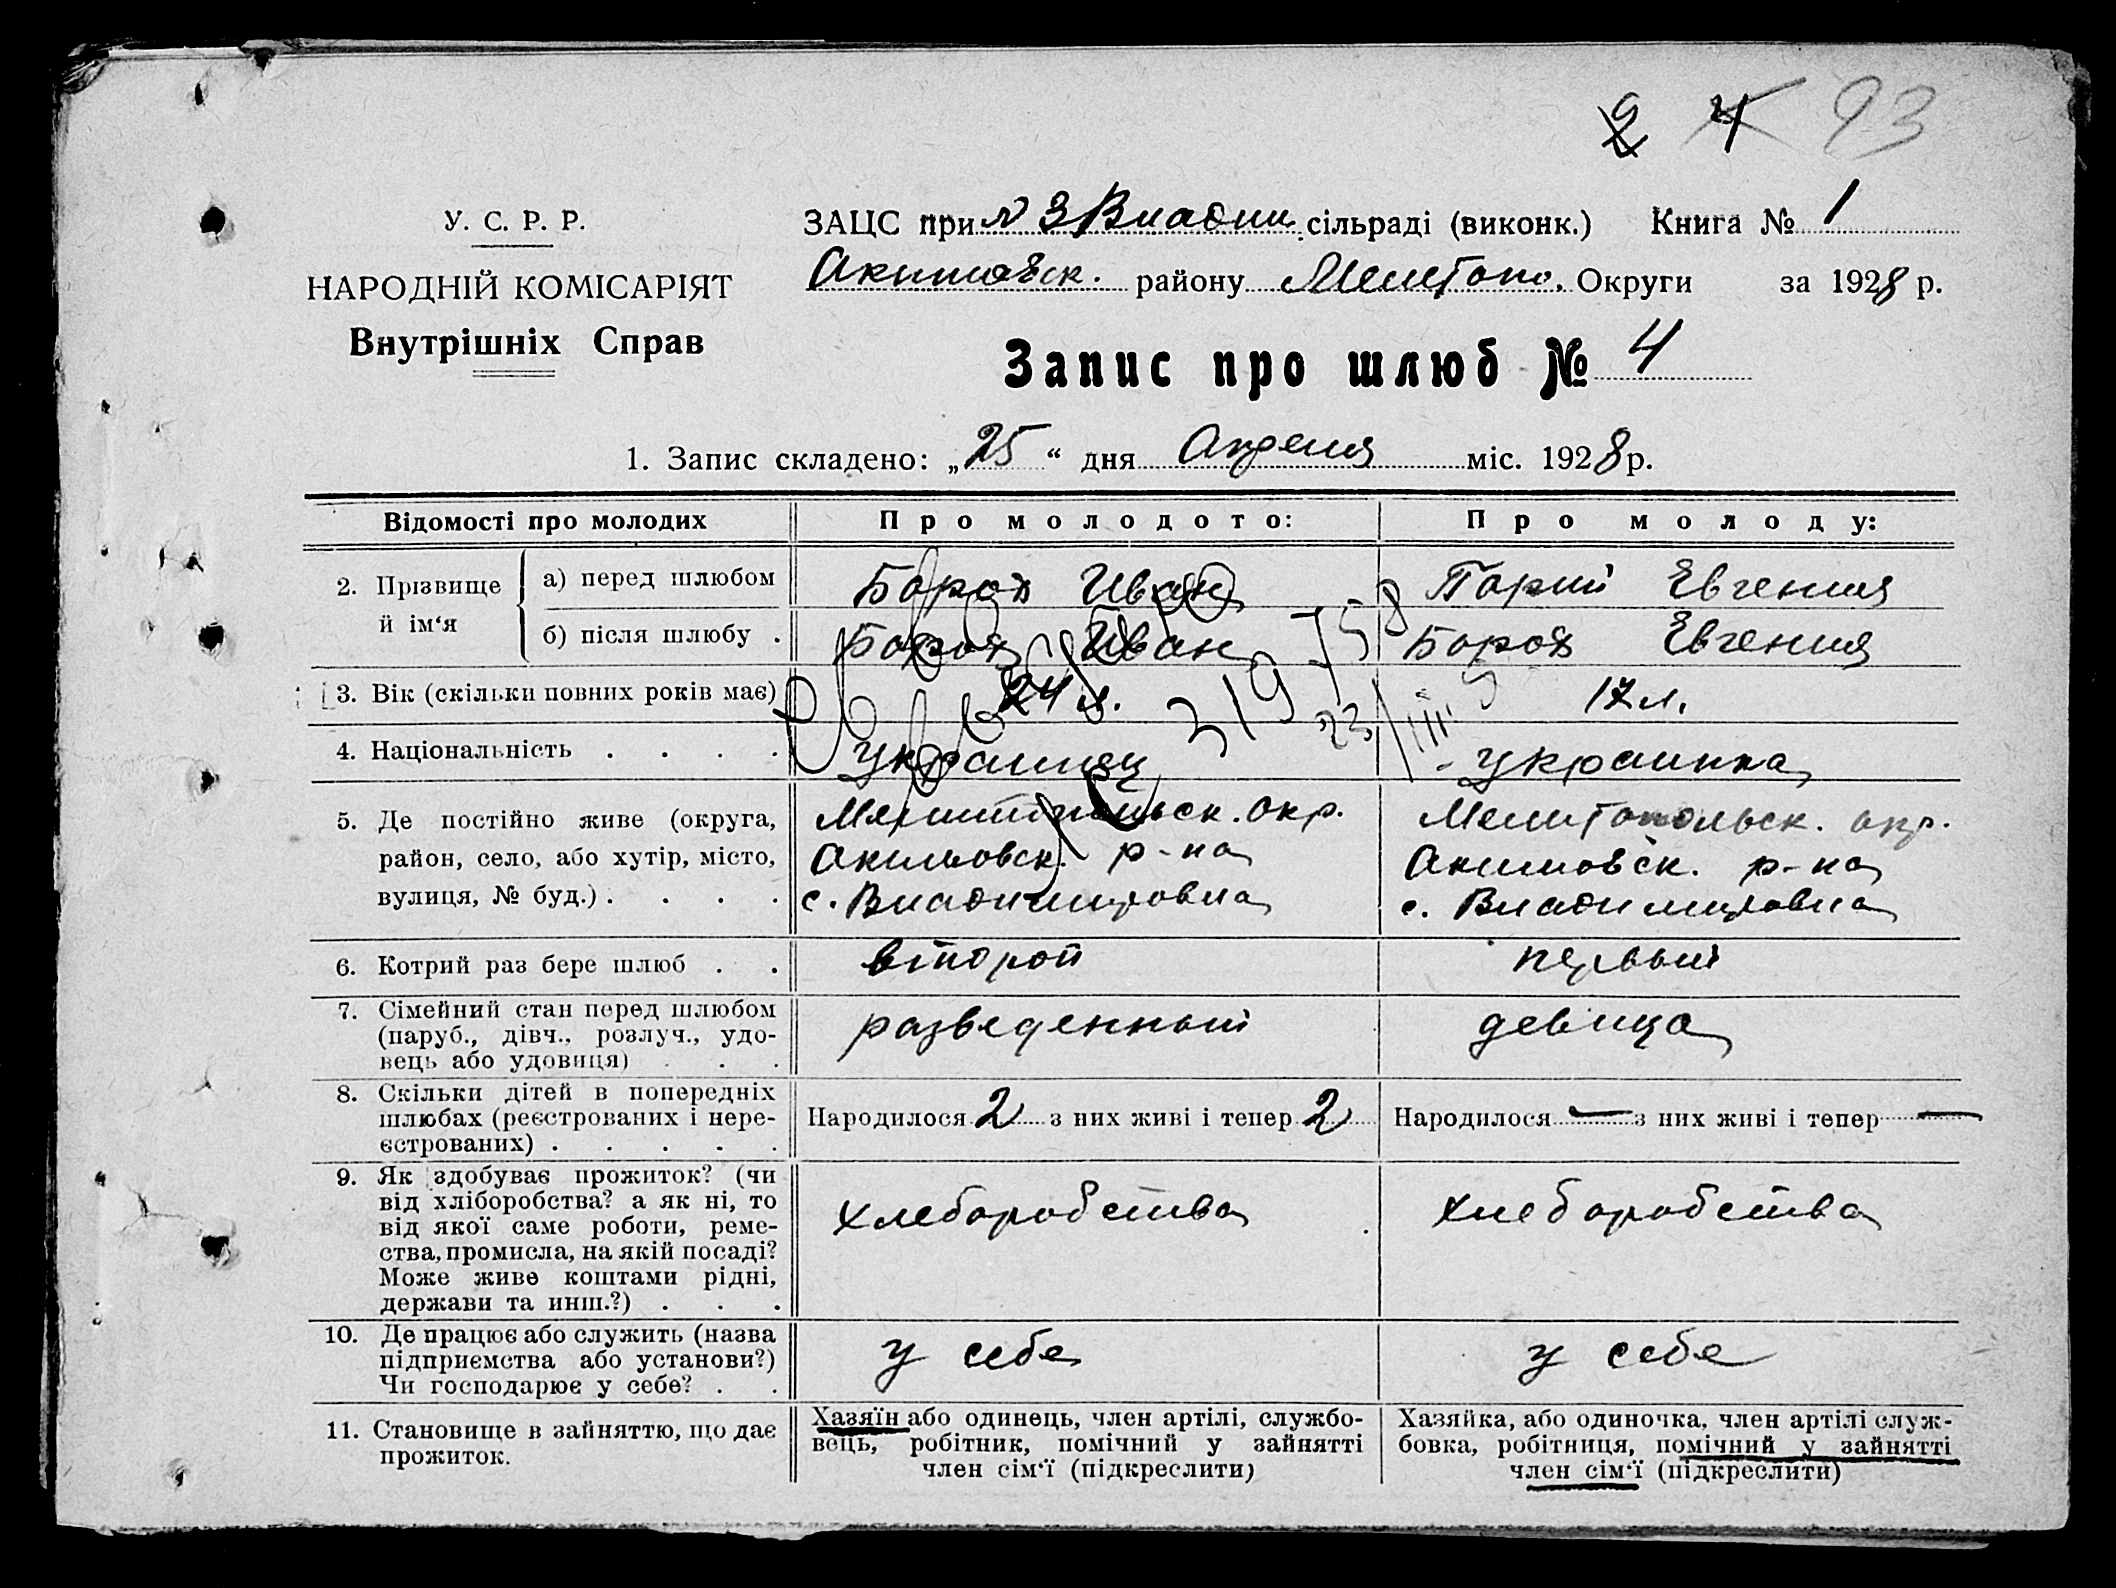 2 4 93
У. С. Р. Р.
НАРОДНІЙ КОМІСАРІЯТ
Внутрішніх Справ
ЗАЦС при №3 Владим. сільраді (виконк.) Книга № 1
Акимовск. району Мелитопо. Округи за 1928 р.
Запис про шлюб № 4
1. Запис складено: „25“ дня Апреля міс. 1928 р.
Відомості про молодих Про молодого: Про молоду:
2. Прізвище й ім‘я
а) перед шлюбом Иван Евгения
б) після шлюбу . Иван Евгения
3. Вік (скільки повних років має) 24 л. 17 л.
319758
23/III
4. Національність . . . . украинец украинка
5. Де постійно живе (округа, Мелитопольск. окр. Мелитопольск. окр.
район, село, або хутір, місто, Акимовск. р-на Акимовск. р-на
вулиця, № буд.) . . . . с. Владимировка с. Владимировка
6. Котрий раз бере шлюб . . второй первый
7. Сімейний стан перед шлюбом
(паруб., дівч., розлуч., удо- разведенный девица
вець або удовиця) . . .
8. Скільки дітей в попередніх
шлюбах (реєстрованих і нере- Народилося 2 з них живі і тепер 2 Народилося — з них живі і тепер —
єстрованих) . . . . .
9. Як здобуває прожиток? (чи
від хліборобства? а як ні, то хлеборобства хлеборобства
від якої саме роботи, реме-
ства, промисла, на якій посаді?
Може живе коштами рідні,
держави та инш.?) . . .
10. Де працює або служить (назва
підприємства або установи?) у себе у себе
Чи господарює у себе? . .
11. Становище в зайняттю, що дає
прожиток.
Хазяїн або одинець, член артілі, службо-
вець, робітник, помічний у зайнятті
член сім‘ї (підкреслити)
Хазяйка, або одиночка, член артілі служ-
бовка, робітниця, помічний у зайнятті
член сім‘ї (підкреслити)